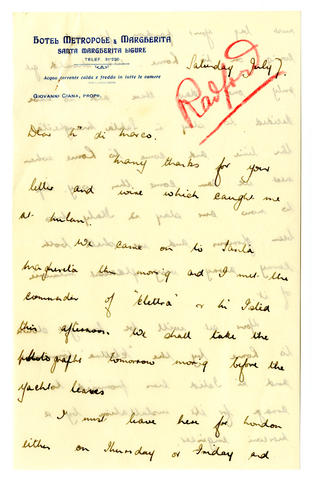 HOTEL METROPOLE & MARGHERITA
SANTA MARGHERITA LIGURE
TELEF.
Acqua corrente calda e fredda in tutte le camere
GIOVANNI CIANA, PROPR.
Saturday July 7
Radford
Dear Mr di Marco.
Many thanks for your
letter and wire which caught me
at Milan.
We came on to Santa
Margherita this morning and I met the
commander of 'Elettra'
this afternoon. We shall take the
photographs tomorrow morning before the
yacht leaves
I must leave here for London
either on Thursday or Friday and